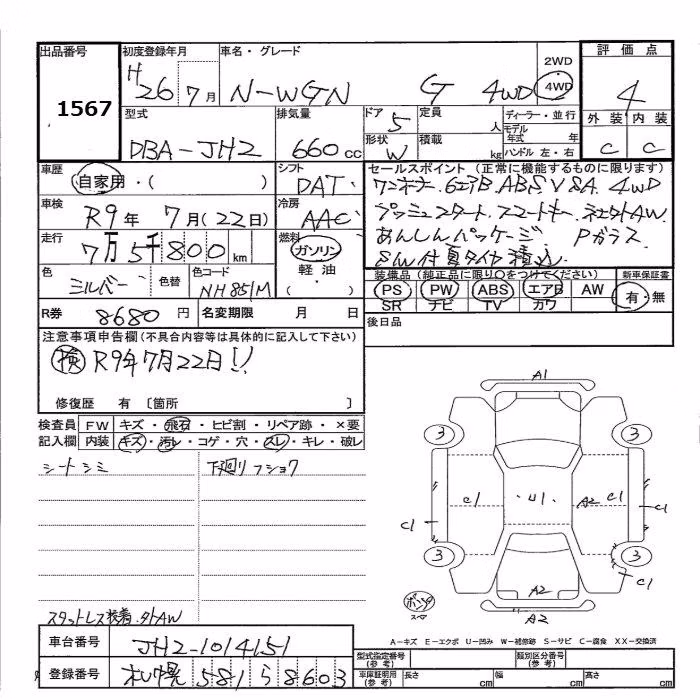 出品番号
1567
初度登録年月
H26 7月
車名・グレード
N-WGN G 4WD
2WD
4WD
評価点
4
外装 内装
C C
型式
DBA-JH2
排気量
660cc
ドア 5
形状 W
定員 人
積載 kg
ディーラー・並行
モデル年式 年
ハンドル 左・右
車歴
自家用・( )
シフト
DAT
車検
R9年 7月(22日)
冷房
AAC
走行
7万5千800km
燃料
ガソリン
軽油
( )
色
シルバー
色替
色コード
NH851M
R券 8680円
名変期限 月 日
セールスポイント(正常に機能するものに限ります)
ワンオーナー.6エアB.ABS VSA.4WD
プッシュスタート.スマートキー.社外AW.
あんしんパッケージ Pガラス.
8W付夏タイヤ積込
装備品(純正品に限り○をつけてください)
新車保証書
PS PW ABS エアB AW
SR ナビ TV カワ
有・無
後日品
注意事項申告欄(不具合内容等は具体的に記入して下さい)
検 R9年7月22日!!
修復歴 有 〔箇所 〕
検査員記入欄
FW キズ・飛石・ヒビ割・リペア跡・×要
内装 キズ・汚レ・コゲ・穴・スレ・キレ・破レ
シートシミ
下廻りフショク
スタットレス装着.外AW
A1
3 3
C1 U1 A2 C1
C1 C1
3 3
C1
A2
A2
A−キズ E−エクボ U−凹み W−補修跡 S−サビ C−腐食 XX−交換済
車台番号
JH2-1014151
登録番号
札幌 581 ら 8603
型式指定番号(参考)
類別区分番号(参考)
車庫証明用(参考)
長さ cm
幅 cm
高さ cm